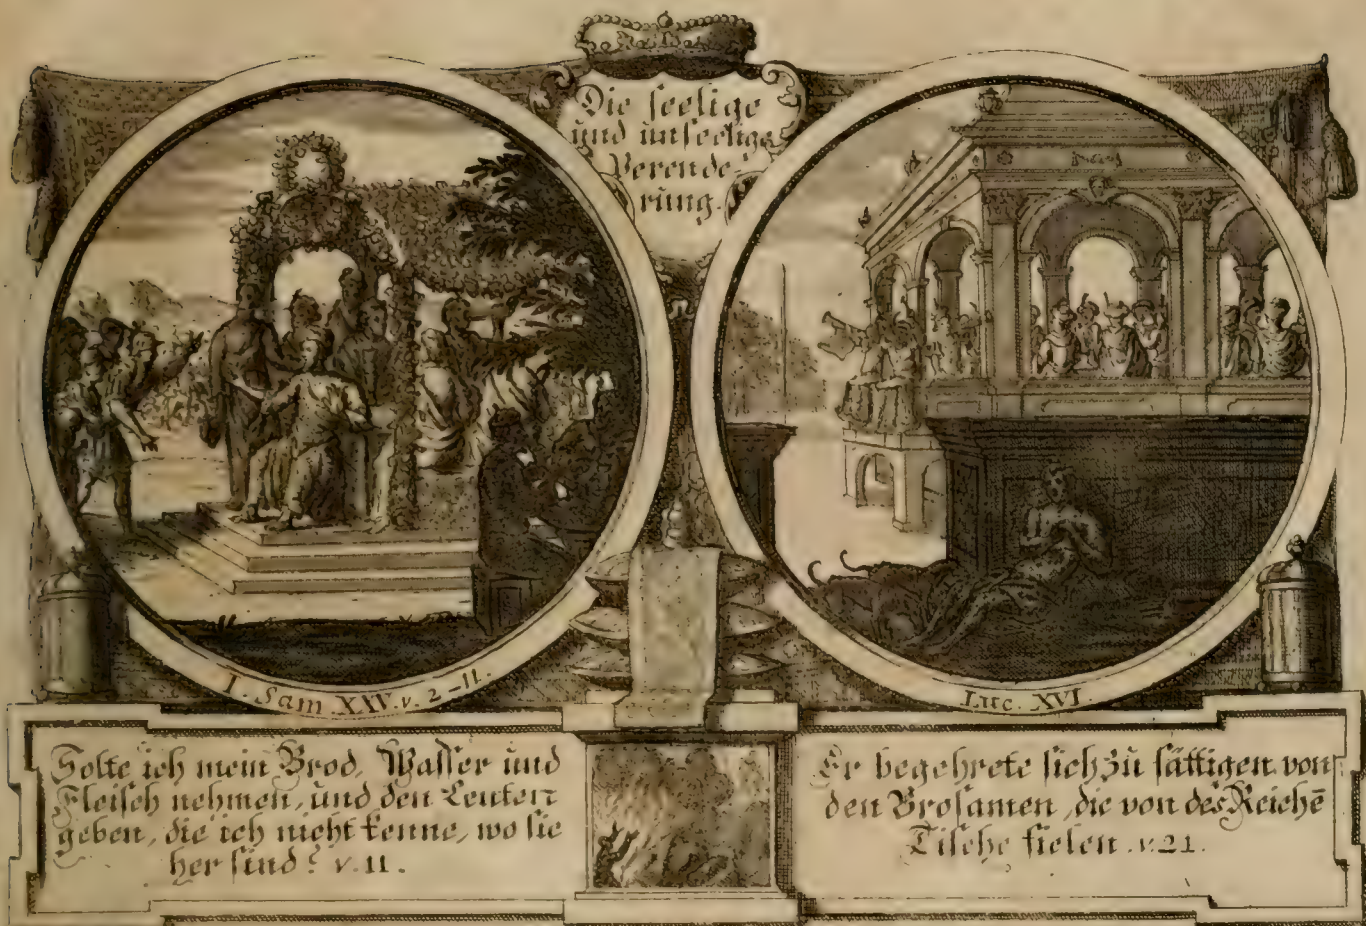 Die seelige
und unseelige
Verende-
rung.
I. Sam XXV. v. 2-11.
Luc. XVI.
Solte ich mein Brod, Wasser und
Fleisch nehmen, und den Leuten
geben, die ich nicht kenne, wo sie
her sind? v. 11.
Er begehrete sich zü sättigen von
den Brosamen, die von des Reichē
Tische fielen. v. 21.